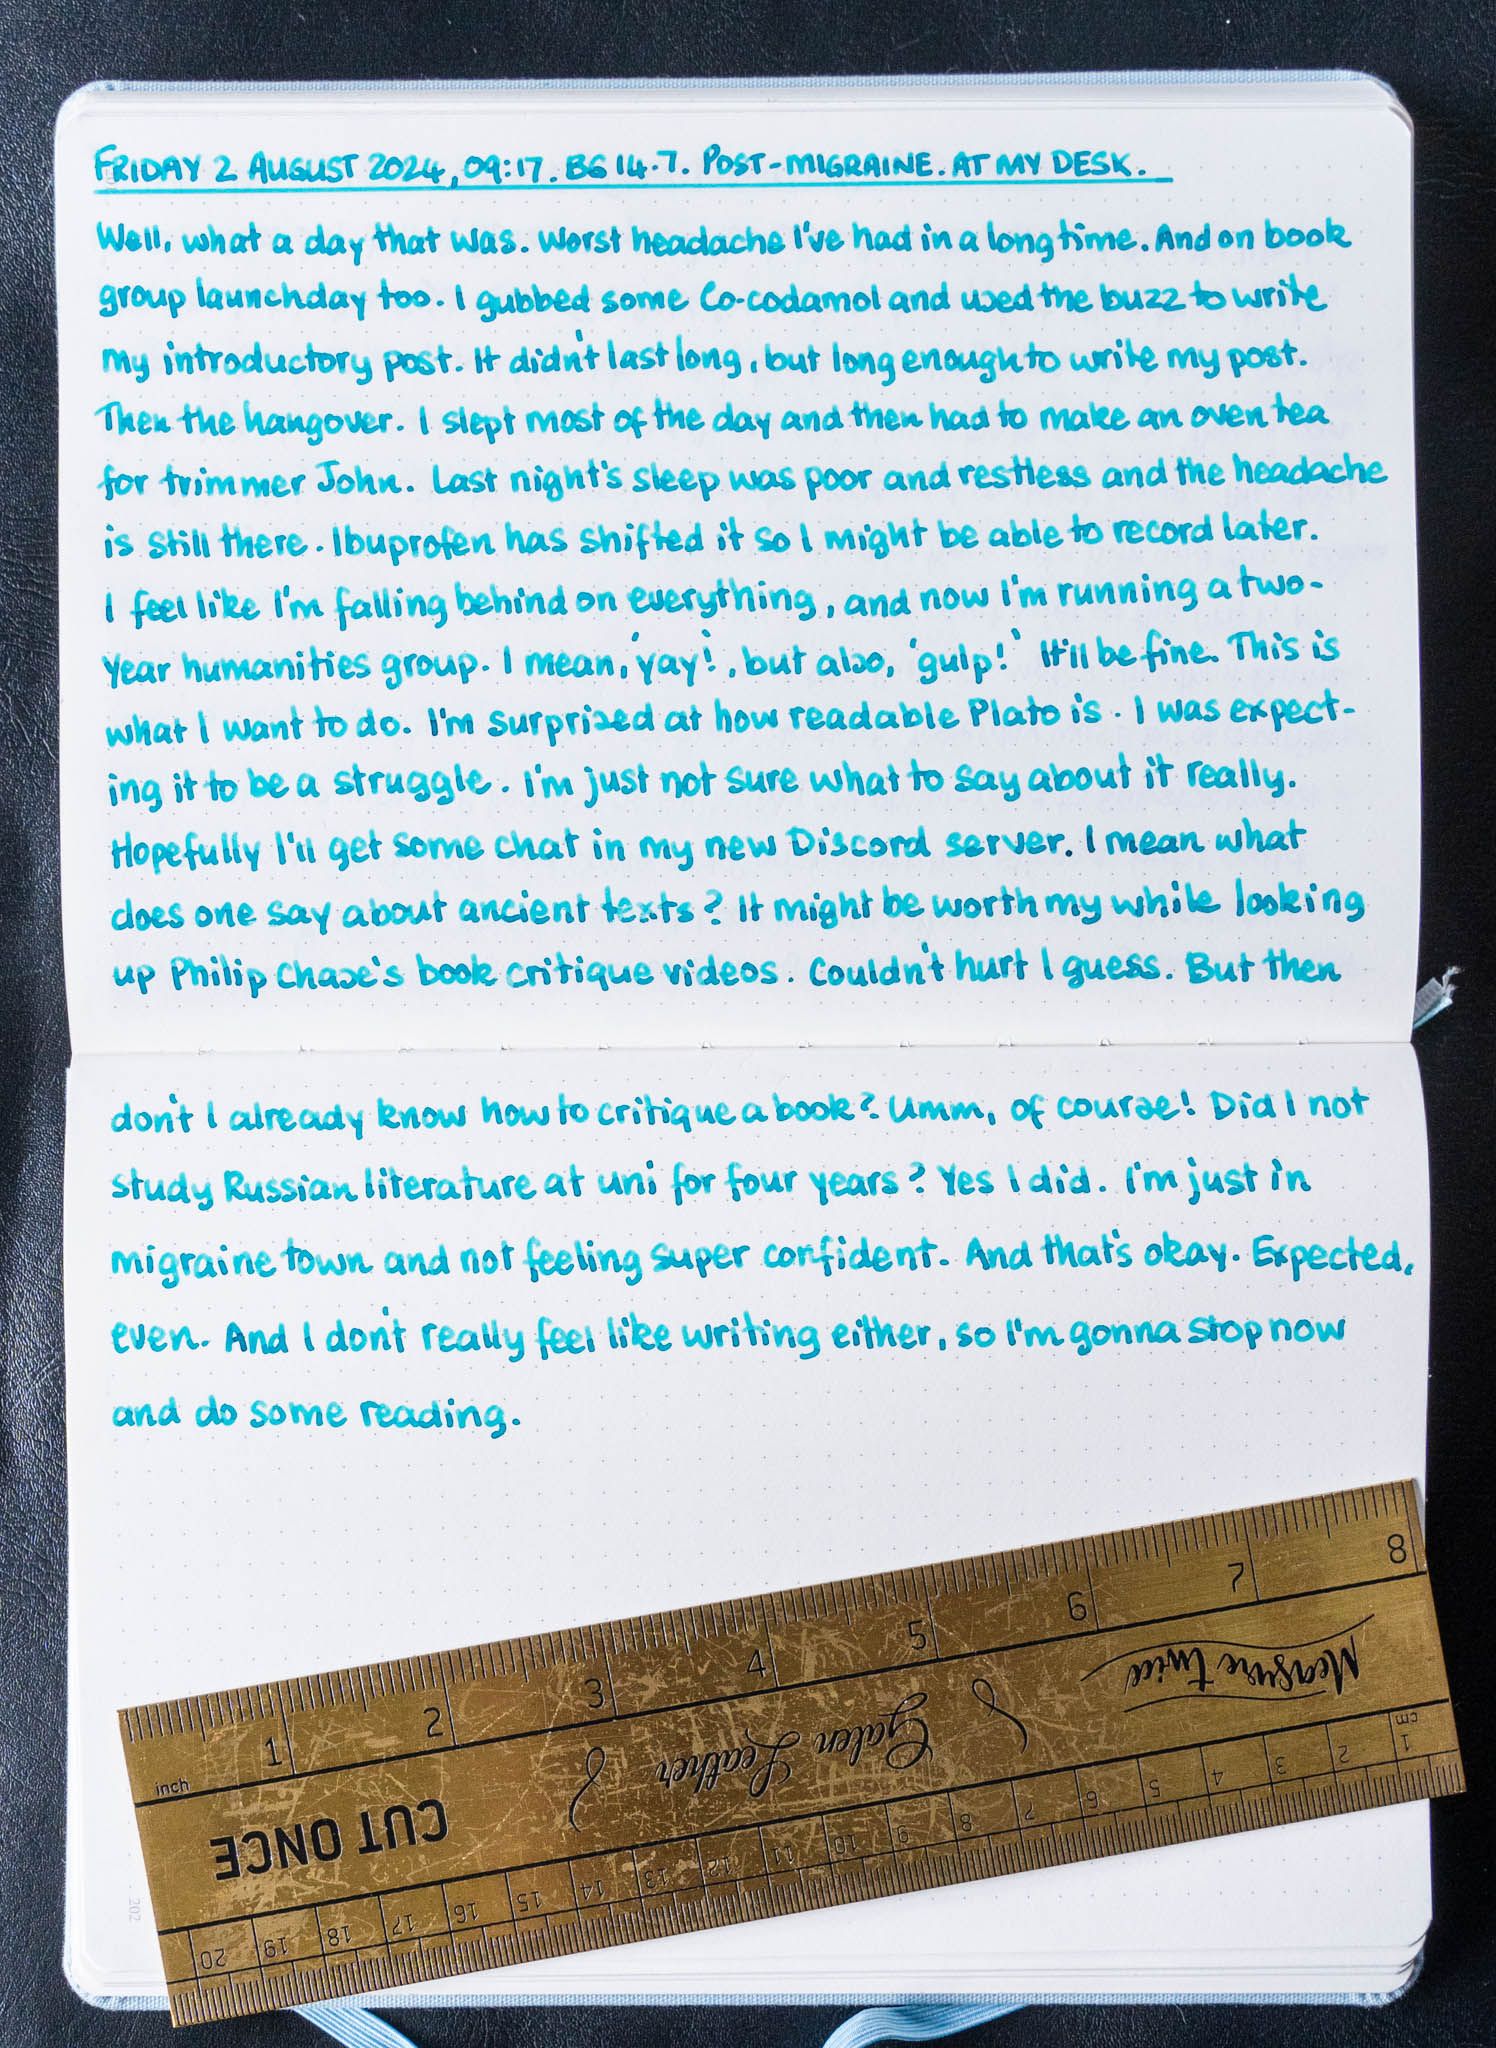 FRIDAY 2 AUGUST 2024, 09:17. BG 14.7. POST-MIGRAINE. AT MY DESK.
Well, what a day that was. Worst headache I've had in a long time. And on book
group launchday too. I gubbed some Co-codamol and used the buzz to write
my introductory post. It didn't last long, but long enough to write my post.
Then the hangover. I slept most of the day and then had to make an oven tea
for trimmer John. Last night's sleep was poor and restless and the headache
is still there. Ibuprofen has shifted it so I might be able to record later.
I feel like I'm falling behind on everything, and now I'm running a two-
year humanities group. I mean, 'yay!', but also, 'gulp!' It'll be fine. This is
what I want to do. I'm surprised at how readable Plato is. I was expect-
ing it to be a struggle. I'm just not sure what to say about it really.
Hopefully I'll get some chat in my new Discord server. I mean what
does one say about ancient texts? It might be worth my while looking
up Philip Chase's book critique videos. Couldn't hurt I guess. But then
don't I already know how to critique a book? Umm, of course! Did I not
study Russian literature at uni for four years? Yes I did. I'm just in
migraine town and not feeling super confident. And that's okay. Expected,
even. And I don't really feel like writing either, so I'm gonna stop now
and do some reading.
1 2 3 4 5 6 7 8
inch
Measure twice
Galen Leather
CUT ONCE
cm
1 2 3 4 5 6 7 8 9 10 11 12 13 14 15 16 17 18 19 20
202